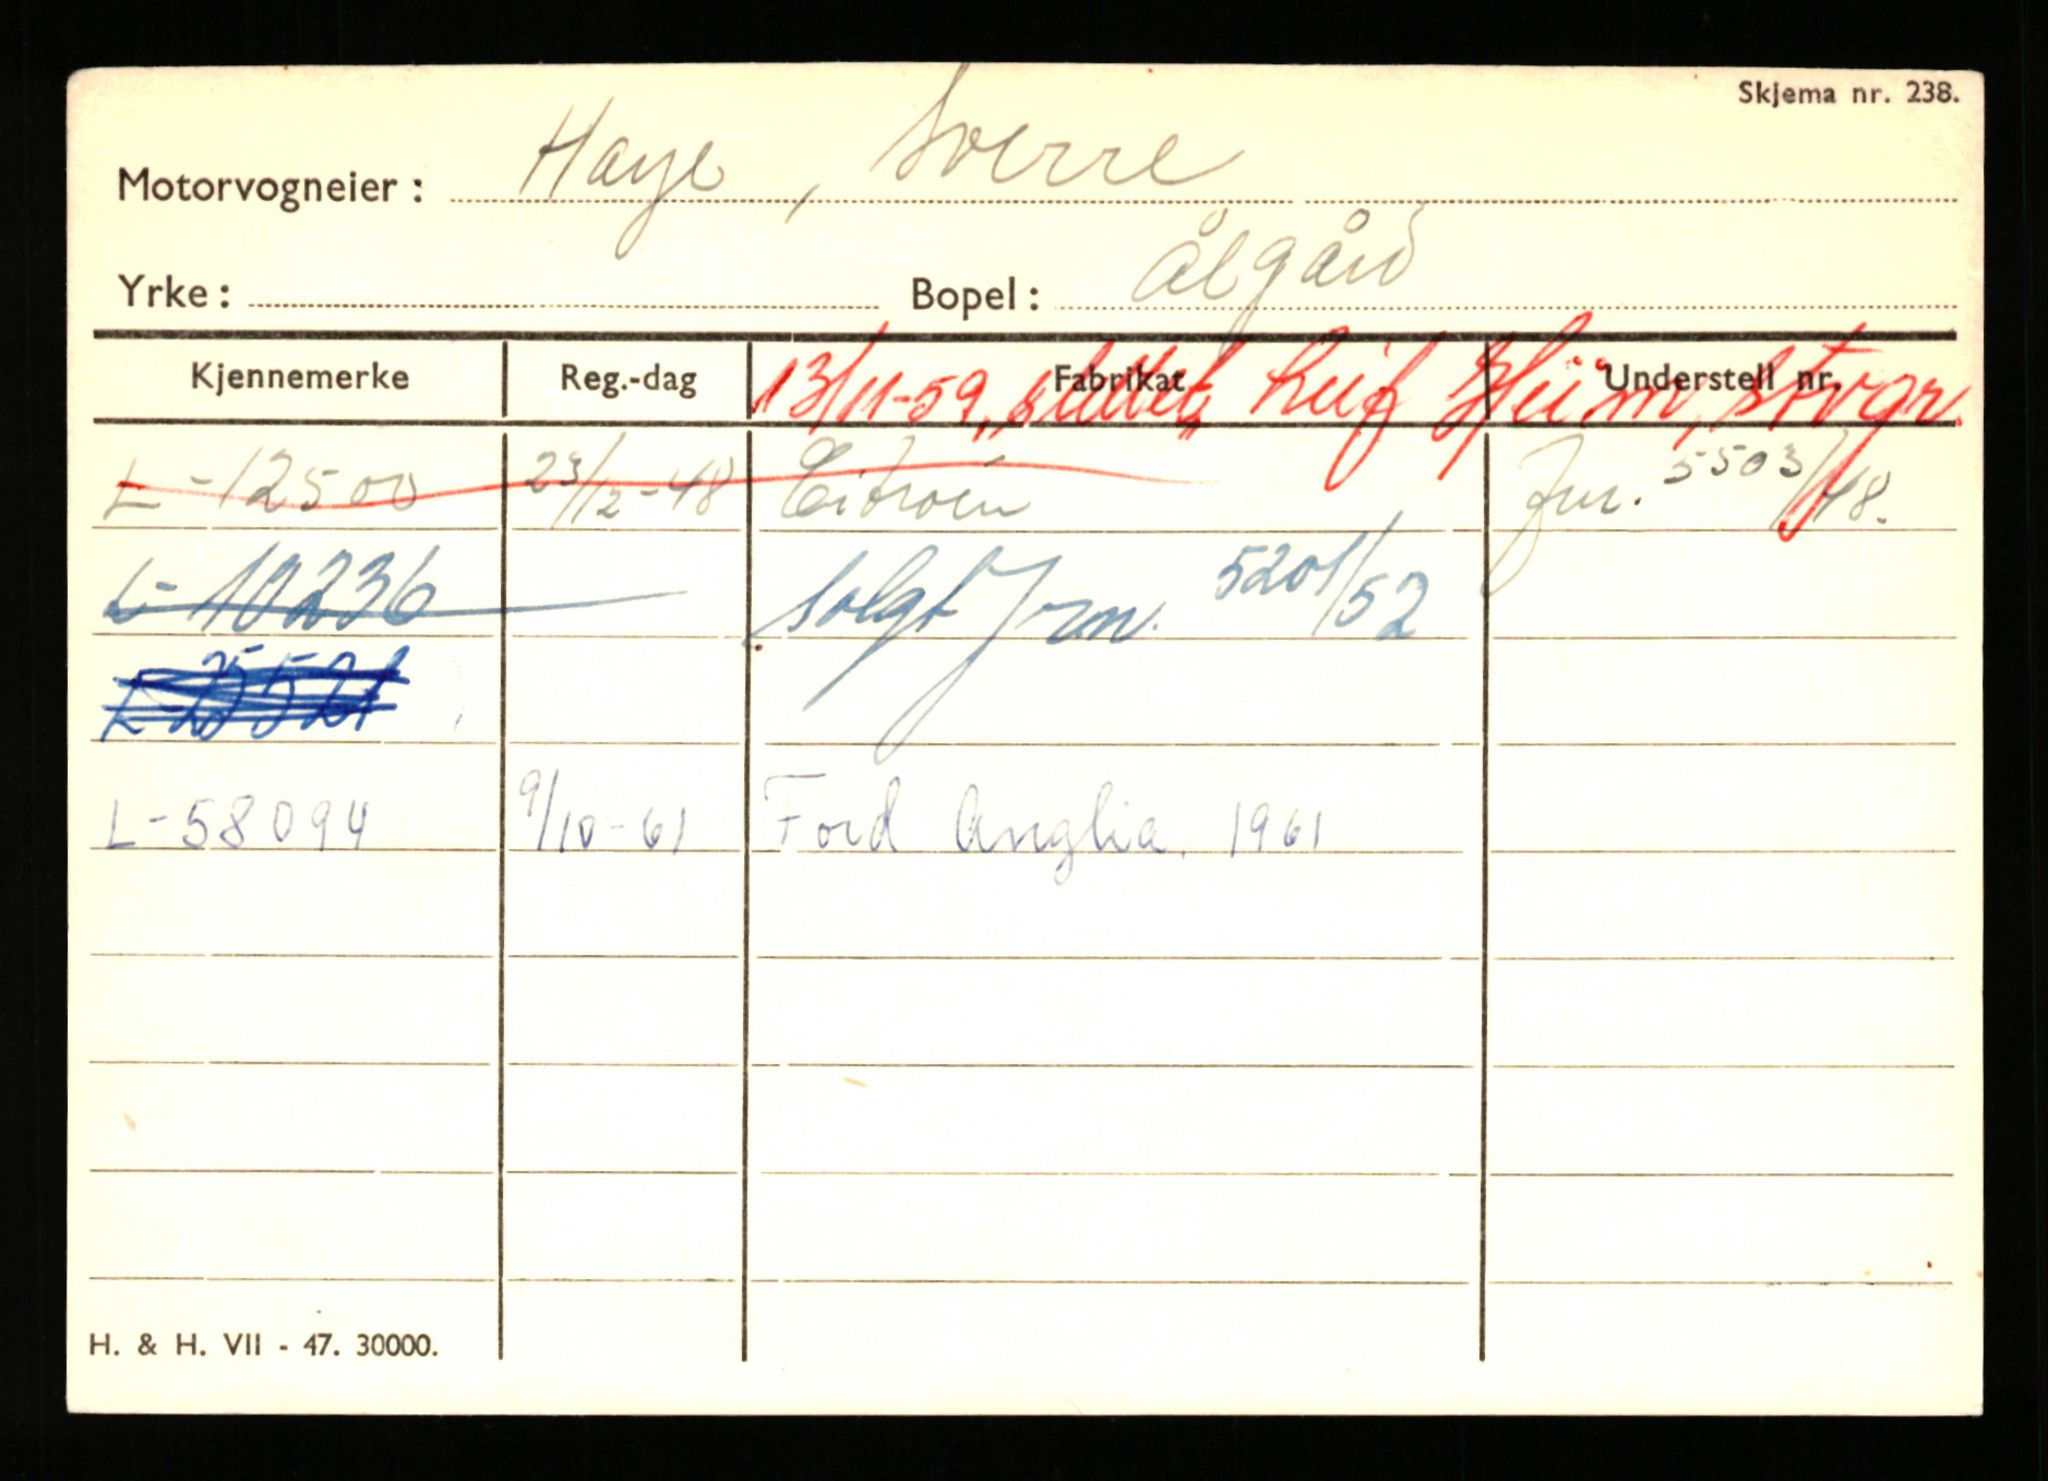 Skjema nr. 238.
Motorvogneier : Haye, Sverre
Yrke : Bopel : Ålgård
Kjennemerke Reg.-dag Fabrikat Understell nr.
13/11-59, slettet, Leif Heim, Stvgr.
L-12500 23/12-48 Citroën Jnr. 5503/48.
L-10236 Solgt Jnr. 5201/52
L-25521
L-58094 9/10-61 Ford Anglia. 1961
H. & H. VII - 47. 30000.